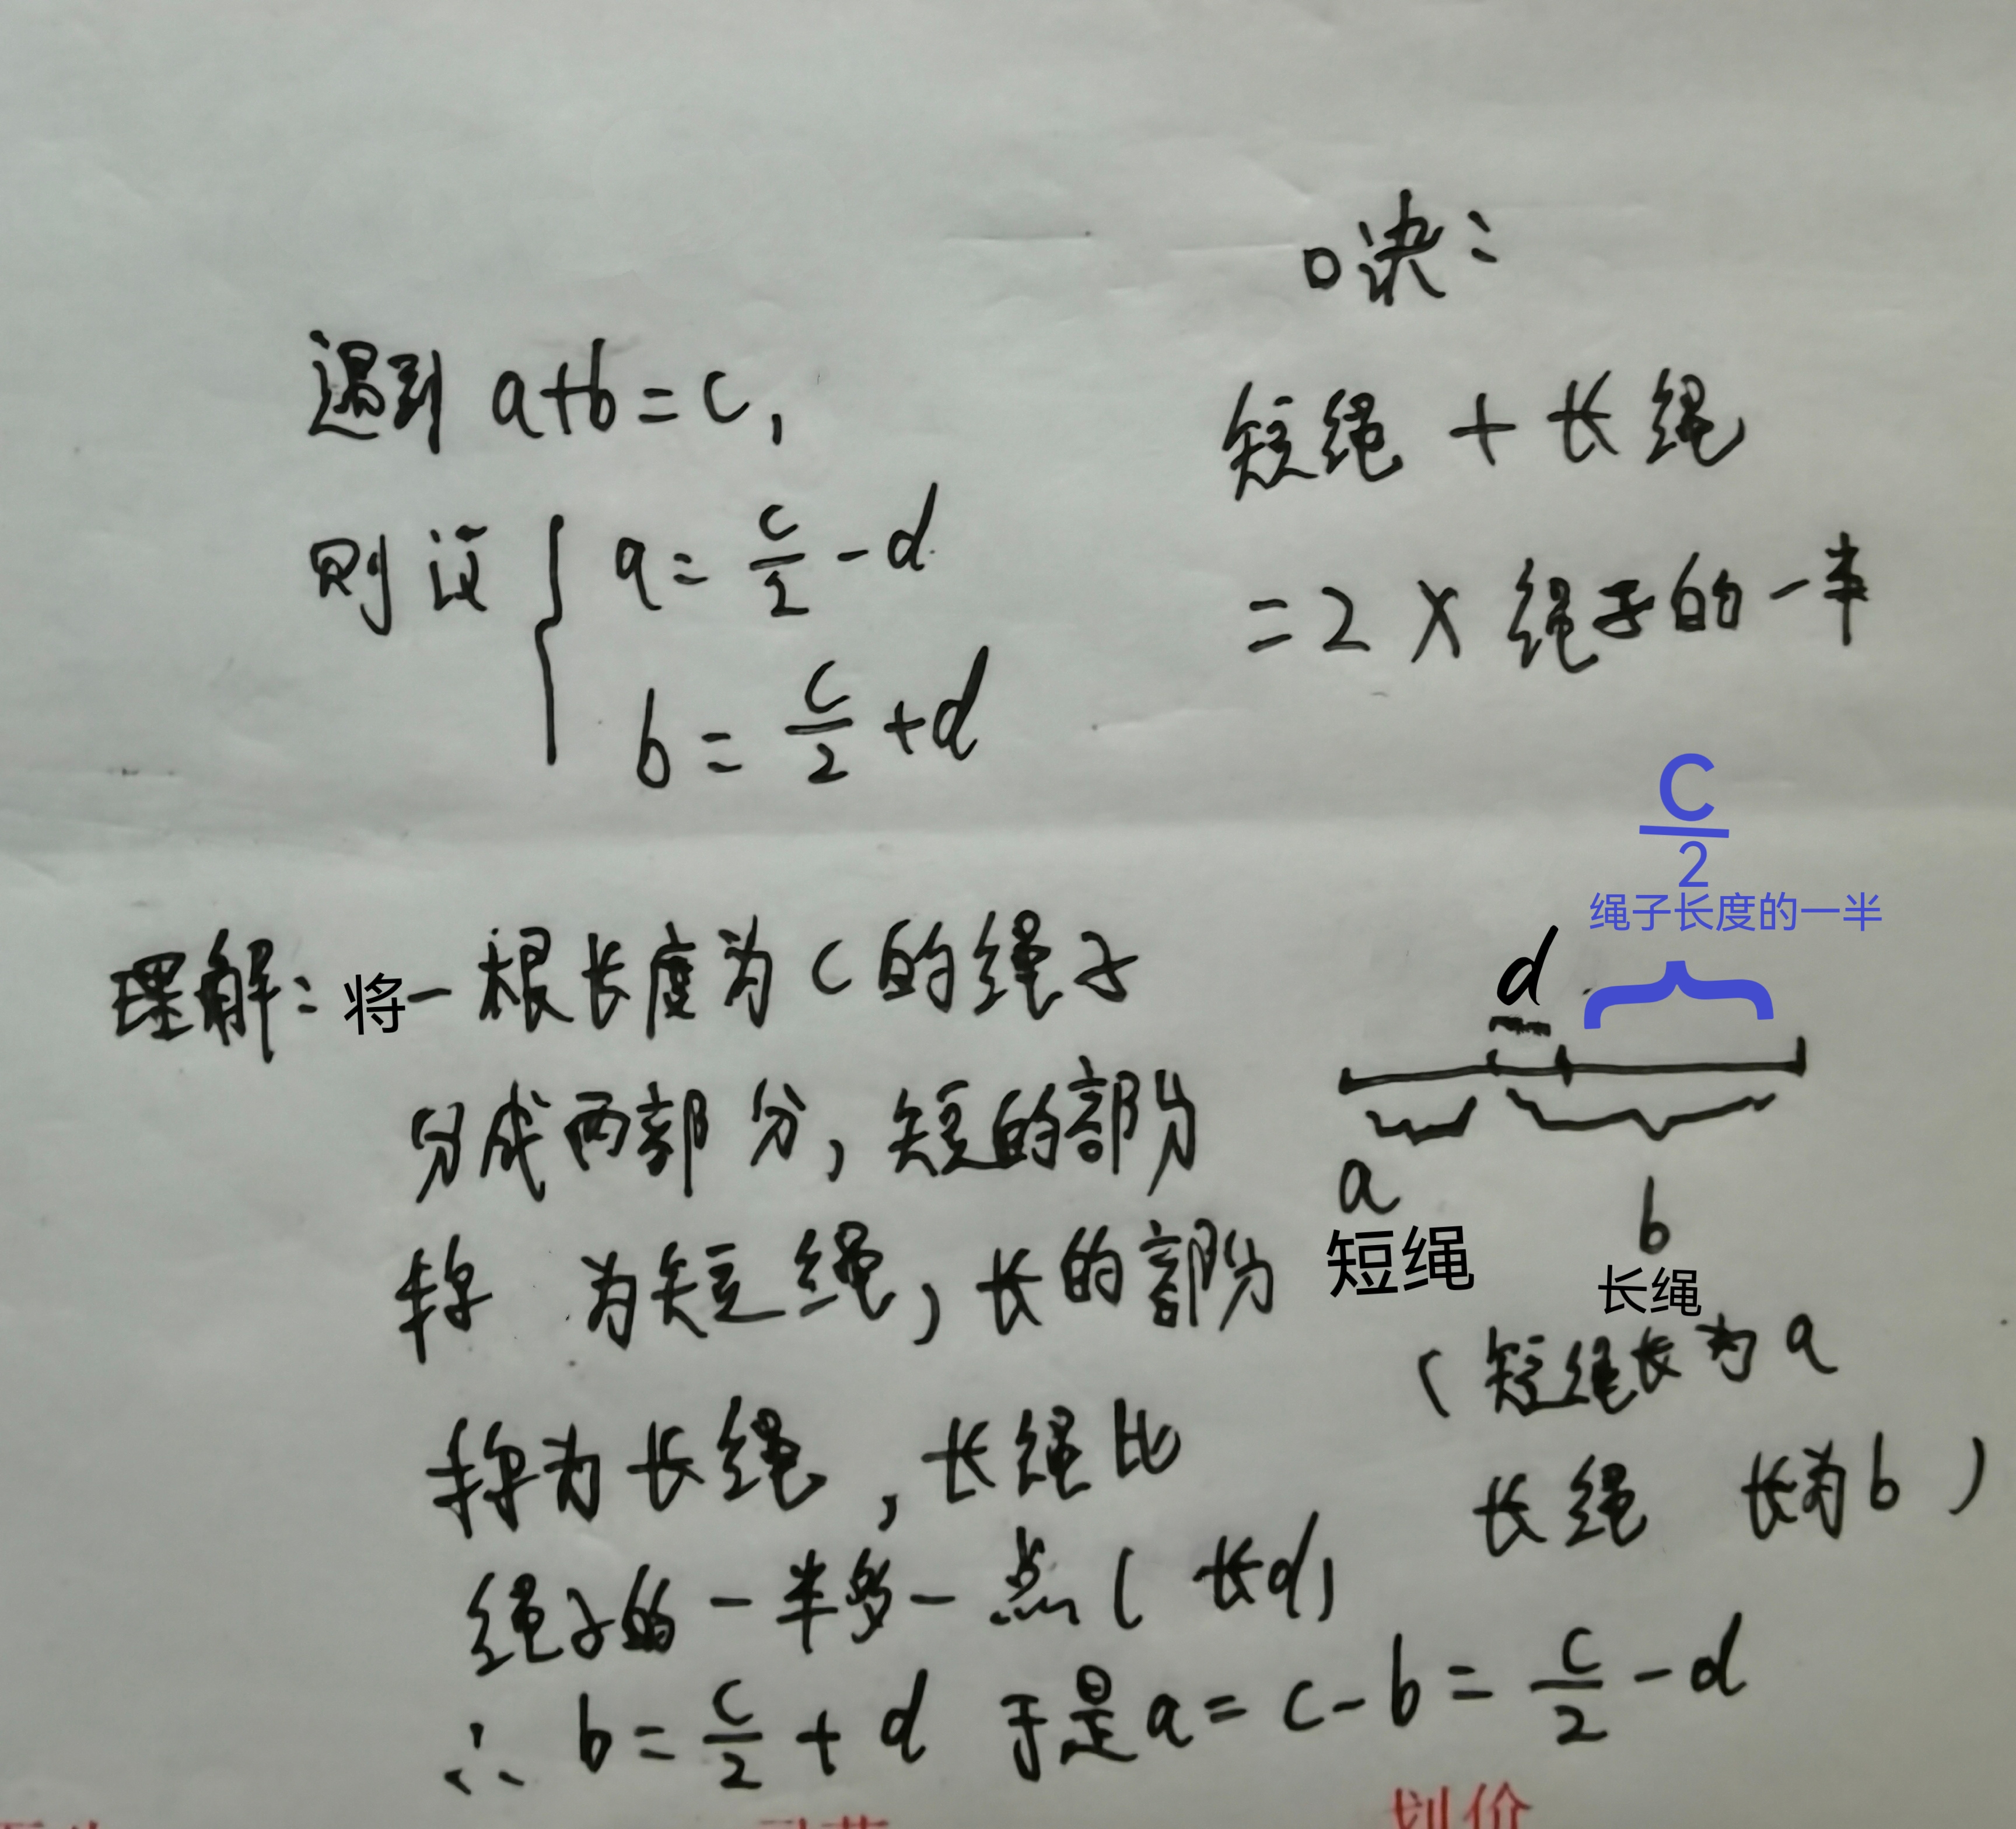 口诀：
遇到 a+b=c，
短绳 + 长绳
则设 { a = c/2 - d
= 2 × 绳子的一半
b = c/2 + d
C/2
绳子长度的一半
d
理解：将一根长度为 c 的绳子
分成两部分，短的部分
a
b
称 为短绳，长的部分
短绳
长绳
（短绳长为 a
称为长绳，长绳比
长绳 长为 b）
绳子的一半多一点（长d）
∴ b = c/2 + d 于是 a = c - b = c/2 - d
划价